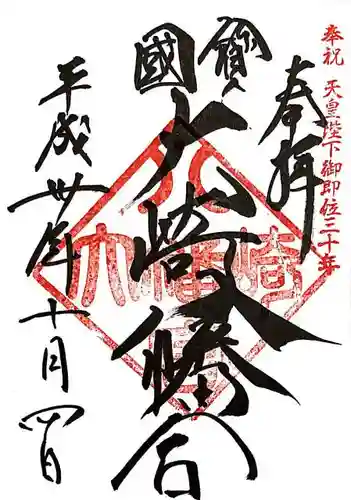 奉祝 天皇陛下御即位三十年
奉拝
國寶
大崎八幡宮
大崎八幡宮
平成卅年十月四日